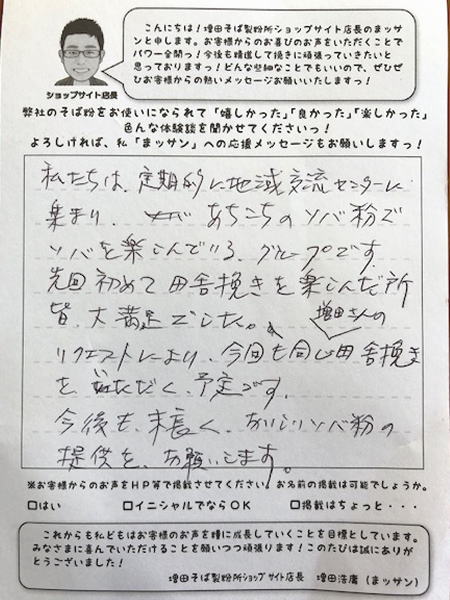 こんにちは！増田そば製粉所ショップサイト店長のまっサン
と申します。お客様からのお喜びのお声をいただくことで
パワー全開っ！今後も精進して挽きに頑張っていきたいと
思っておりますっ！どんな些細なことでもいいので、ぜひぜ
ひお客様からの熱いメッセージお願いいたしますっ！
ショップサイト店長
弊社のそば粉をお使いになられて「嬉しかった」「良かった」「楽しかった」
色んな体験談を聞かせてくださいっ！
よろしければ、私「まッサン」への応援メッセージもお願いしますっ！
私たちは、定期的に地域交流センターに
集まり、あちこちのソバ粉で
ソバを楽しんでいる、グループです。
先回初めて田舎挽きを楽しんだ所
皆、大満足でした。
増田さんの
リクエストにより、今回も同じ田舎挽き
を いただく、予定です。
今後も、末長く、おいしいソバ粉の
提供を、お願いします。
※お客様からのお声をHP等で掲載させてください。お名前の掲載は可能でしょうか。
□はい □イニシャルでならOK □掲載はちょっと・・・
これからも私どもはお客様のお声を糧に成長していくことを目標としています。
みなさまに喜んでいただけることを願いつつ頑張ります！このたびは誠にありが
とうございました！
増田そば製粉所ショップサイト店長 増田浩庸（まッサン）